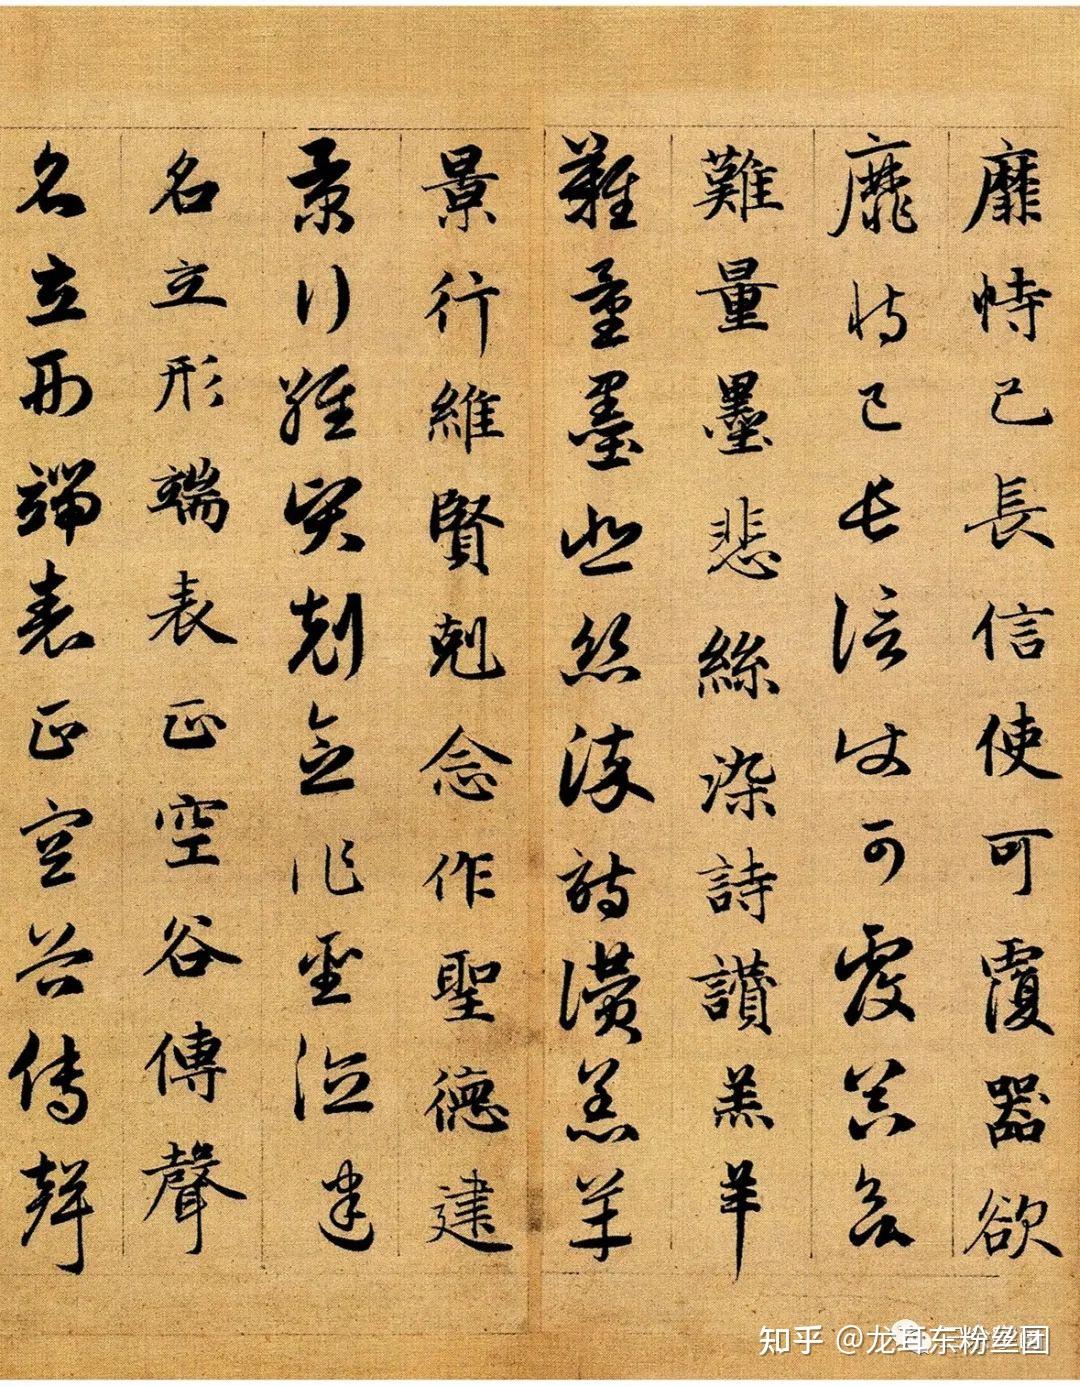 靡恃己長信使可覆器欲
靡恃己長信使可覆器欲
難量墨悲絲染詩讃羔羊
難量墨悲絲染詩讃羔羊
景行維賢剋念作聖德建
景行維賢剋念作聖德建
名立形端表正空谷傳聲
名立形端表正空谷傳聲
知乎 @龙耳东粉丝团